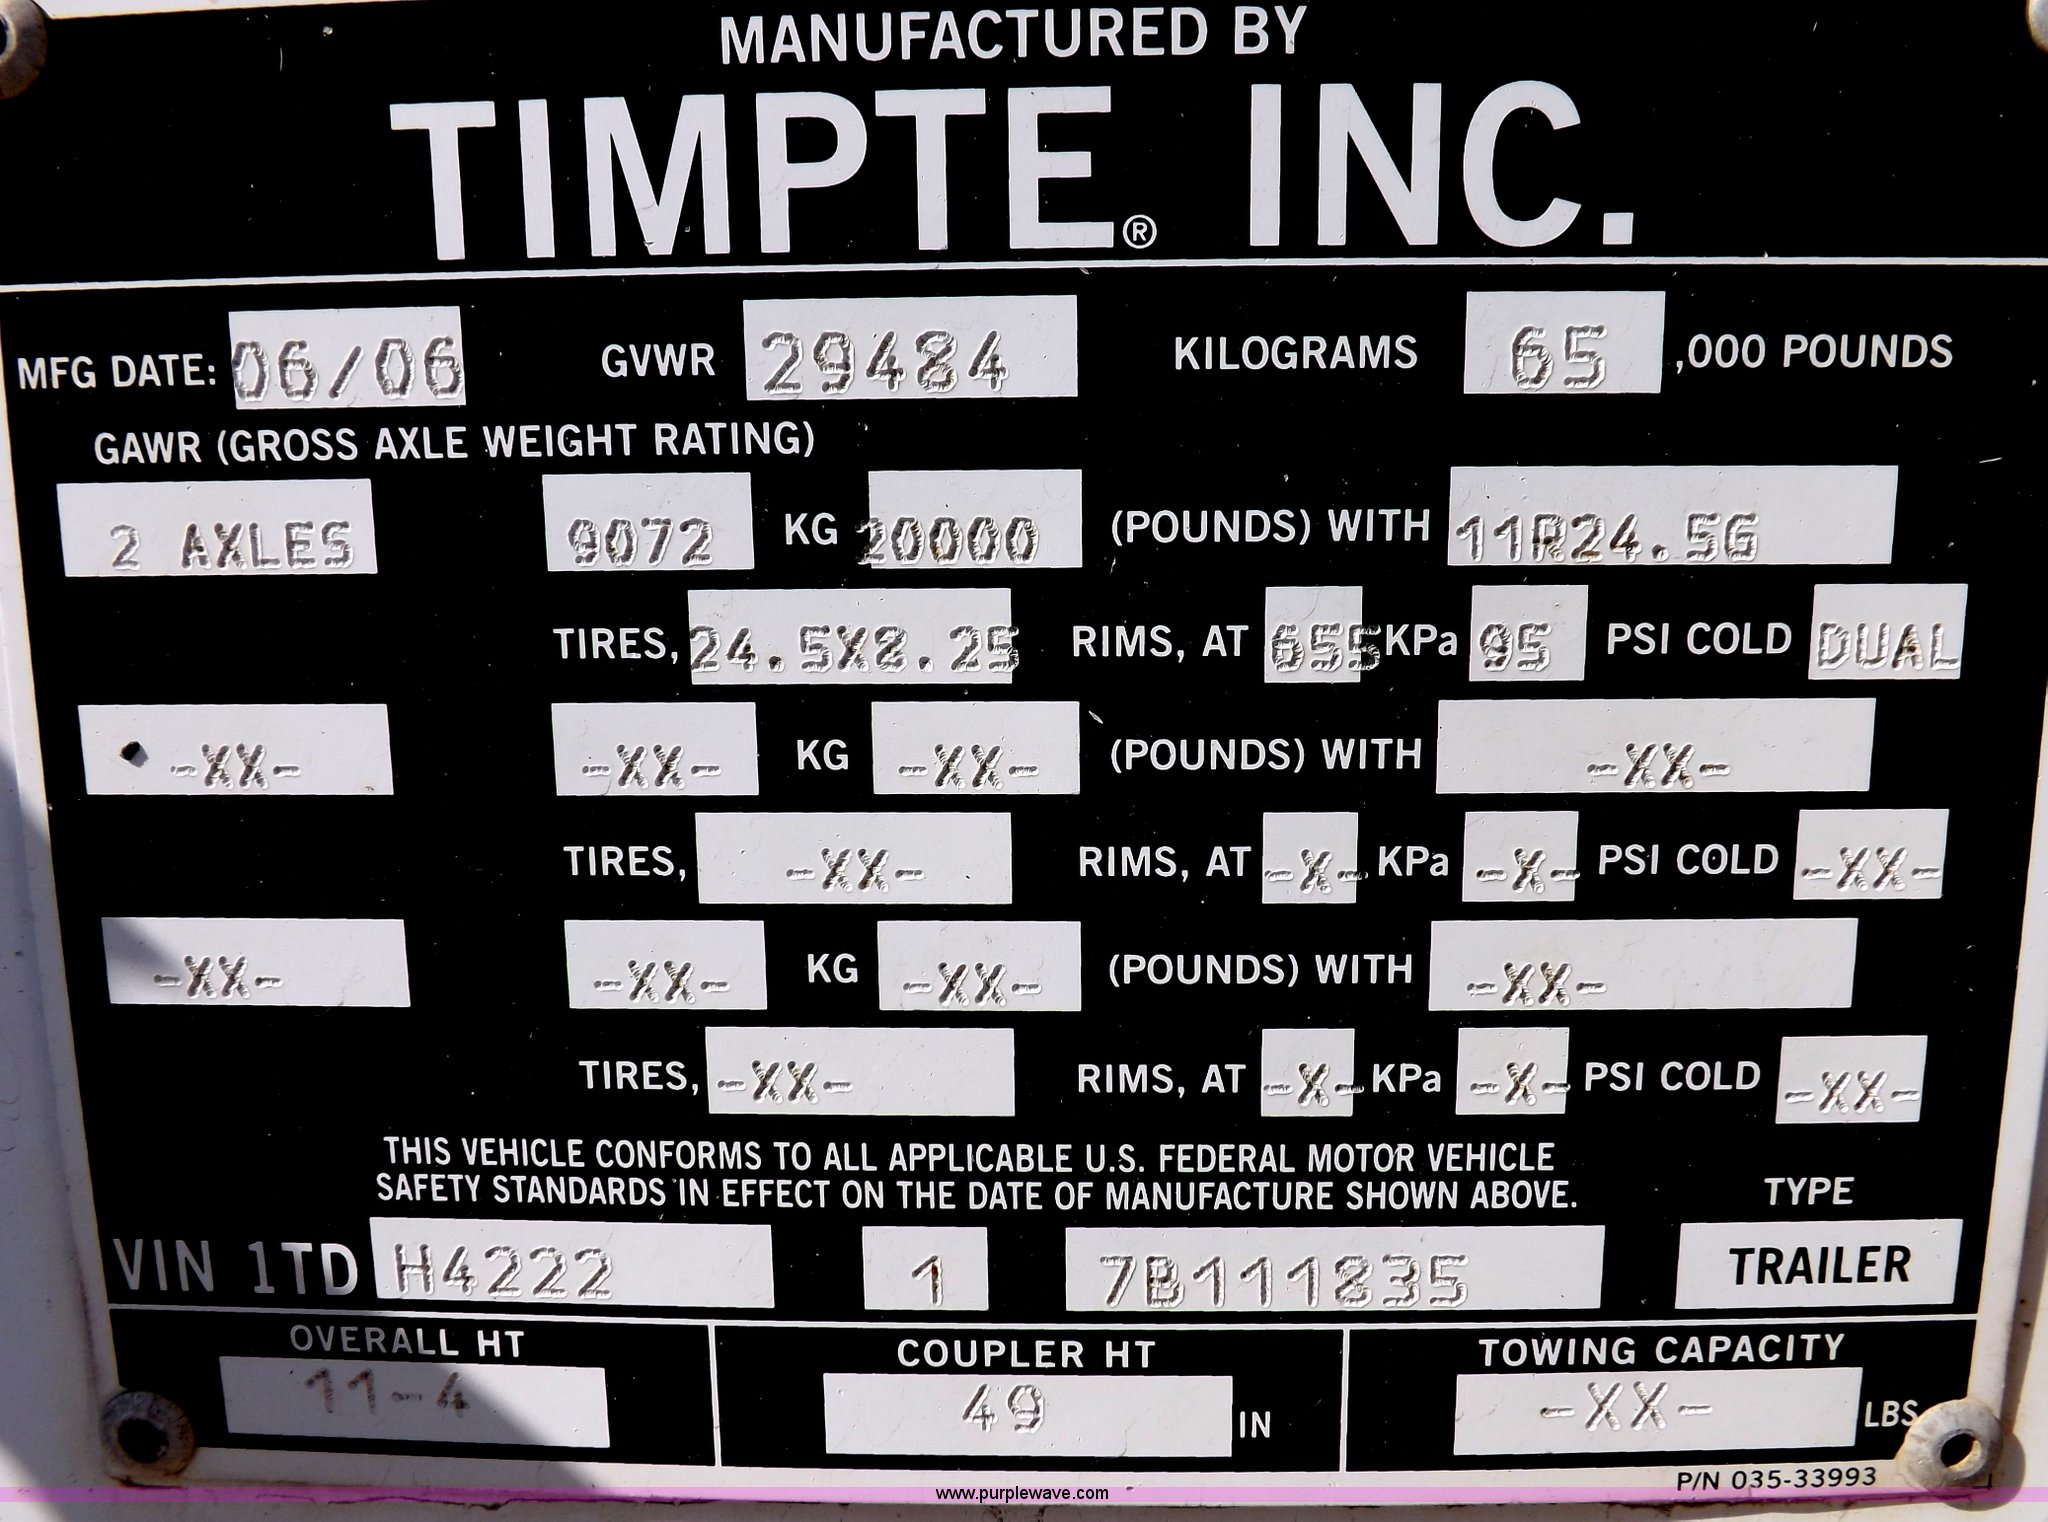 MANUFACTURED BY
TIMPTE® INC.
MFG DATE: 06/06 GVWR 29484 KILOGRAMS 65 ,000 POUNDS
GAWR (GROSS AXLE WEIGHT RATING)
2 AXLES 9072 KG 20000 (POUNDS) WITH 11R24.5G
TIRES, 24.5X8.25 RIMS, AT 655 KPa 95 PSI COLD DUAL
-XX- -XX- KG -XX- (POUNDS) WITH -XX-
TIRES, -XX- RIMS, AT -X- KPa -X- PSI COLD -XX-
-XX- -XX- KG -XX- (POUNDS) WITH -XX-
TIRES, -XX- RIMS, AT -X- KPa -X- PSI COLD -XX-
THIS VEHICLE CONFORMS TO ALL APPLICABLE U.S. FEDERAL MOTOR VEHICLE
SAFETY STANDARDS IN EFFECT ON THE DATE OF MANUFACTURE SHOWN ABOVE.
TYPE
VIN 1TD H4222 1 7B111835 TRAILER
OVERALL HT COUPLER HT TOWING CAPACITY
11-4 49 IN -XX- LBS
P/N 035-33993
www.purplewave.com